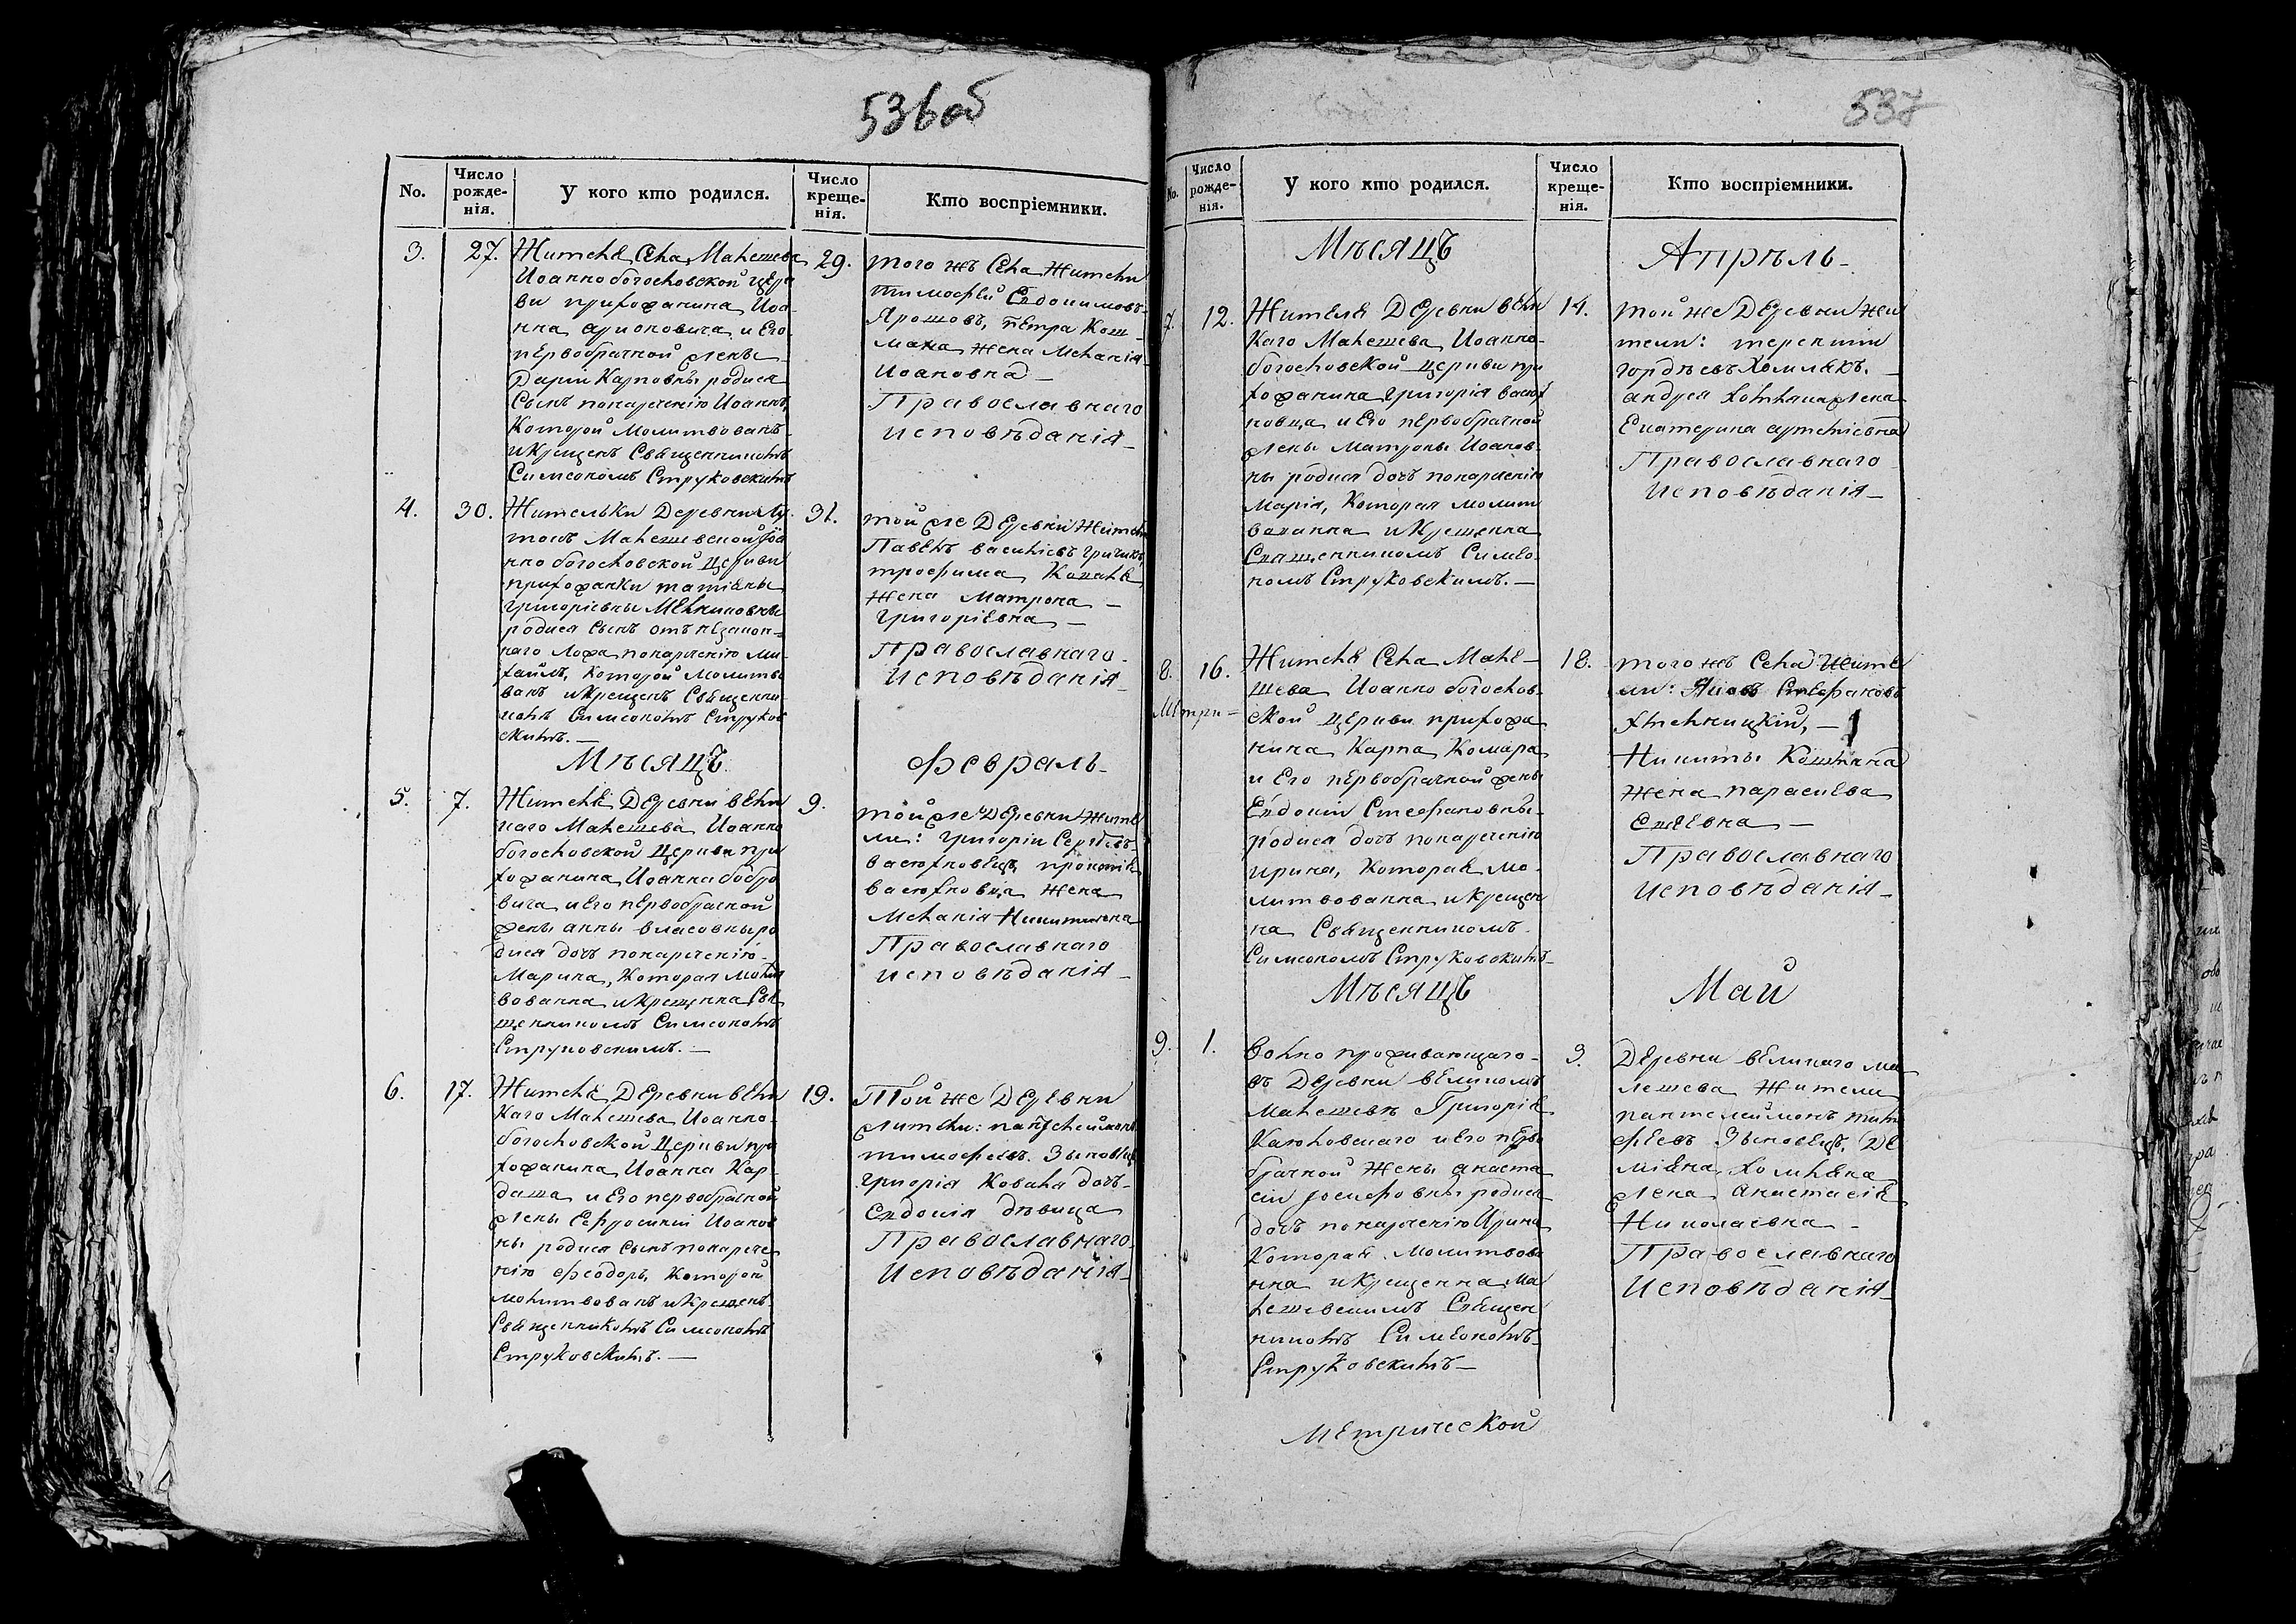 536об
No.
Число рожде-нія.
У кого кто родился.
Число креще-нія.
Кто воспріемники.
3.
27.
Жителя Села Малешева
Иоаннобогословской церк
ви прихожанина Иоа-
нна и Его
первобрачной жены
Дарии Карповны родися
Сынъ понаречению Иоаннъ,
Которой Молитвованъ
и Крещенъ Священникомъ
Симеономъ Струковскимъ
29.
того жъ Села Жители
Тимофей Евдокимовъ
Ярошовъ, Петра Кош-
мана жена Мелания
Иоановна
Православнаго
исповѣдания
4.
30.
Жительки Деревни
Малешевской Иоа
ннобогословской Церкви
прихожанки татияны
григориевны
родися Сынъ отъ незакон-
наго ложа понаречению Ми-
хаилъ, Которой Молитво
ванъ и Крещенъ Священни-
комъ Симеономъ Струков
скимъ. —
31.
той же Деревни Жители
Павелъ василиевъ
трофима Коваля
жена Матрона —
григориевна —
Православнаго
исповѣдания
Мѣсяцъ
Февраль
5.
7.
Жителя Деревни вели
каго Малешева Иоанно
богословской Церкви при
хожанина Иоанна бобро
вича и Его первобрачной
жены анны власовны ро
дися дочь понаречению
Марина, Которая Молит
вованна и Крещенна Свя
щенникомъ Симеономъ
Струковскимъ. —
9.
той же Деревни Жите
ли: григорий Сергѣевъ
васюхновецъ, прокопия
васюхновца жена
Мелания Никитична
Православнаго
исповѣдания
6.
17.
Жителя Деревни вели
каго Малешева Иоанно-
богословской Церкви при
хожанина Иоанна Кар-
даша и Его первобрачной
жены Ефросинии Иоанов
ны родися сынъ понарече
нию феодоръ, Которой
молитвованъ и Крещенъ
Священникомъ Симеономъ
Струковскимъ. —
19.
Той же Деревни
жители: пантелеймонъ
тимофеевъ Зыновецъ
григория Коваля дочь
Евдокия дѣвица
Православнаго
исповѣдания
537
No.
Число рожде-нія.
У кого кто родился.
Число креще-нія.
Кто воспріемники.
Мѣсяцъ
Апрѣль
7.
12.
Жителя Деревни вели
Каго Малешева Иоанно-
богословской церкви при
хожанина григория васюх
новца и Его первобрачной
жены Матроны Иоанов-
ны родися дочь понаречению
Мария, Которая молит
вованна и Крещенна
Священникомъ Симео-
номъ Струковскимъ. —
14.
той же Деревни жи
тели: терентий
гордѣевъ Хомлякъ. —
андрея жена
Екатерина
Православнаго
исповѣдания
8.
16.
Жителя Села Мале-
шева Иоаннобогослов-
ской церкви прихожа
нина Карпа Комара
и Его первобрачной жены
Евдокии Стефановны
родися дочь понаречению
ирина, Которая мо-
литвованна и Крещен
на Священникомъ
Симеономъ Струковскимъ
18.
того жъ Села Жите
ли: Яковъ Стефановъ
Хмельницкий, —
Никиты
жена параскева
—
Православнаго
исповѣдания
Мѣсяцъ
Май
9.
1.
Вольно проживающаго
въ Деревни великомъ
Малешевѣ Григория
и Его перво
брачной жены анаста
сии Иосифовны родися
дочь понаречению Ирина
Которая Молитвова
нна и Крещенна Ма
лешевскимъ Священ
никомъ Симеономъ
Струковскимъ —
3.
Деревни великаго ма
лешева жители
пантелеймонъ тимо
феевъ Зыновецъ, Де
мияна Хомляка
жена анастасия
Николаевна —
Православнаго
исповѣдания
метрической